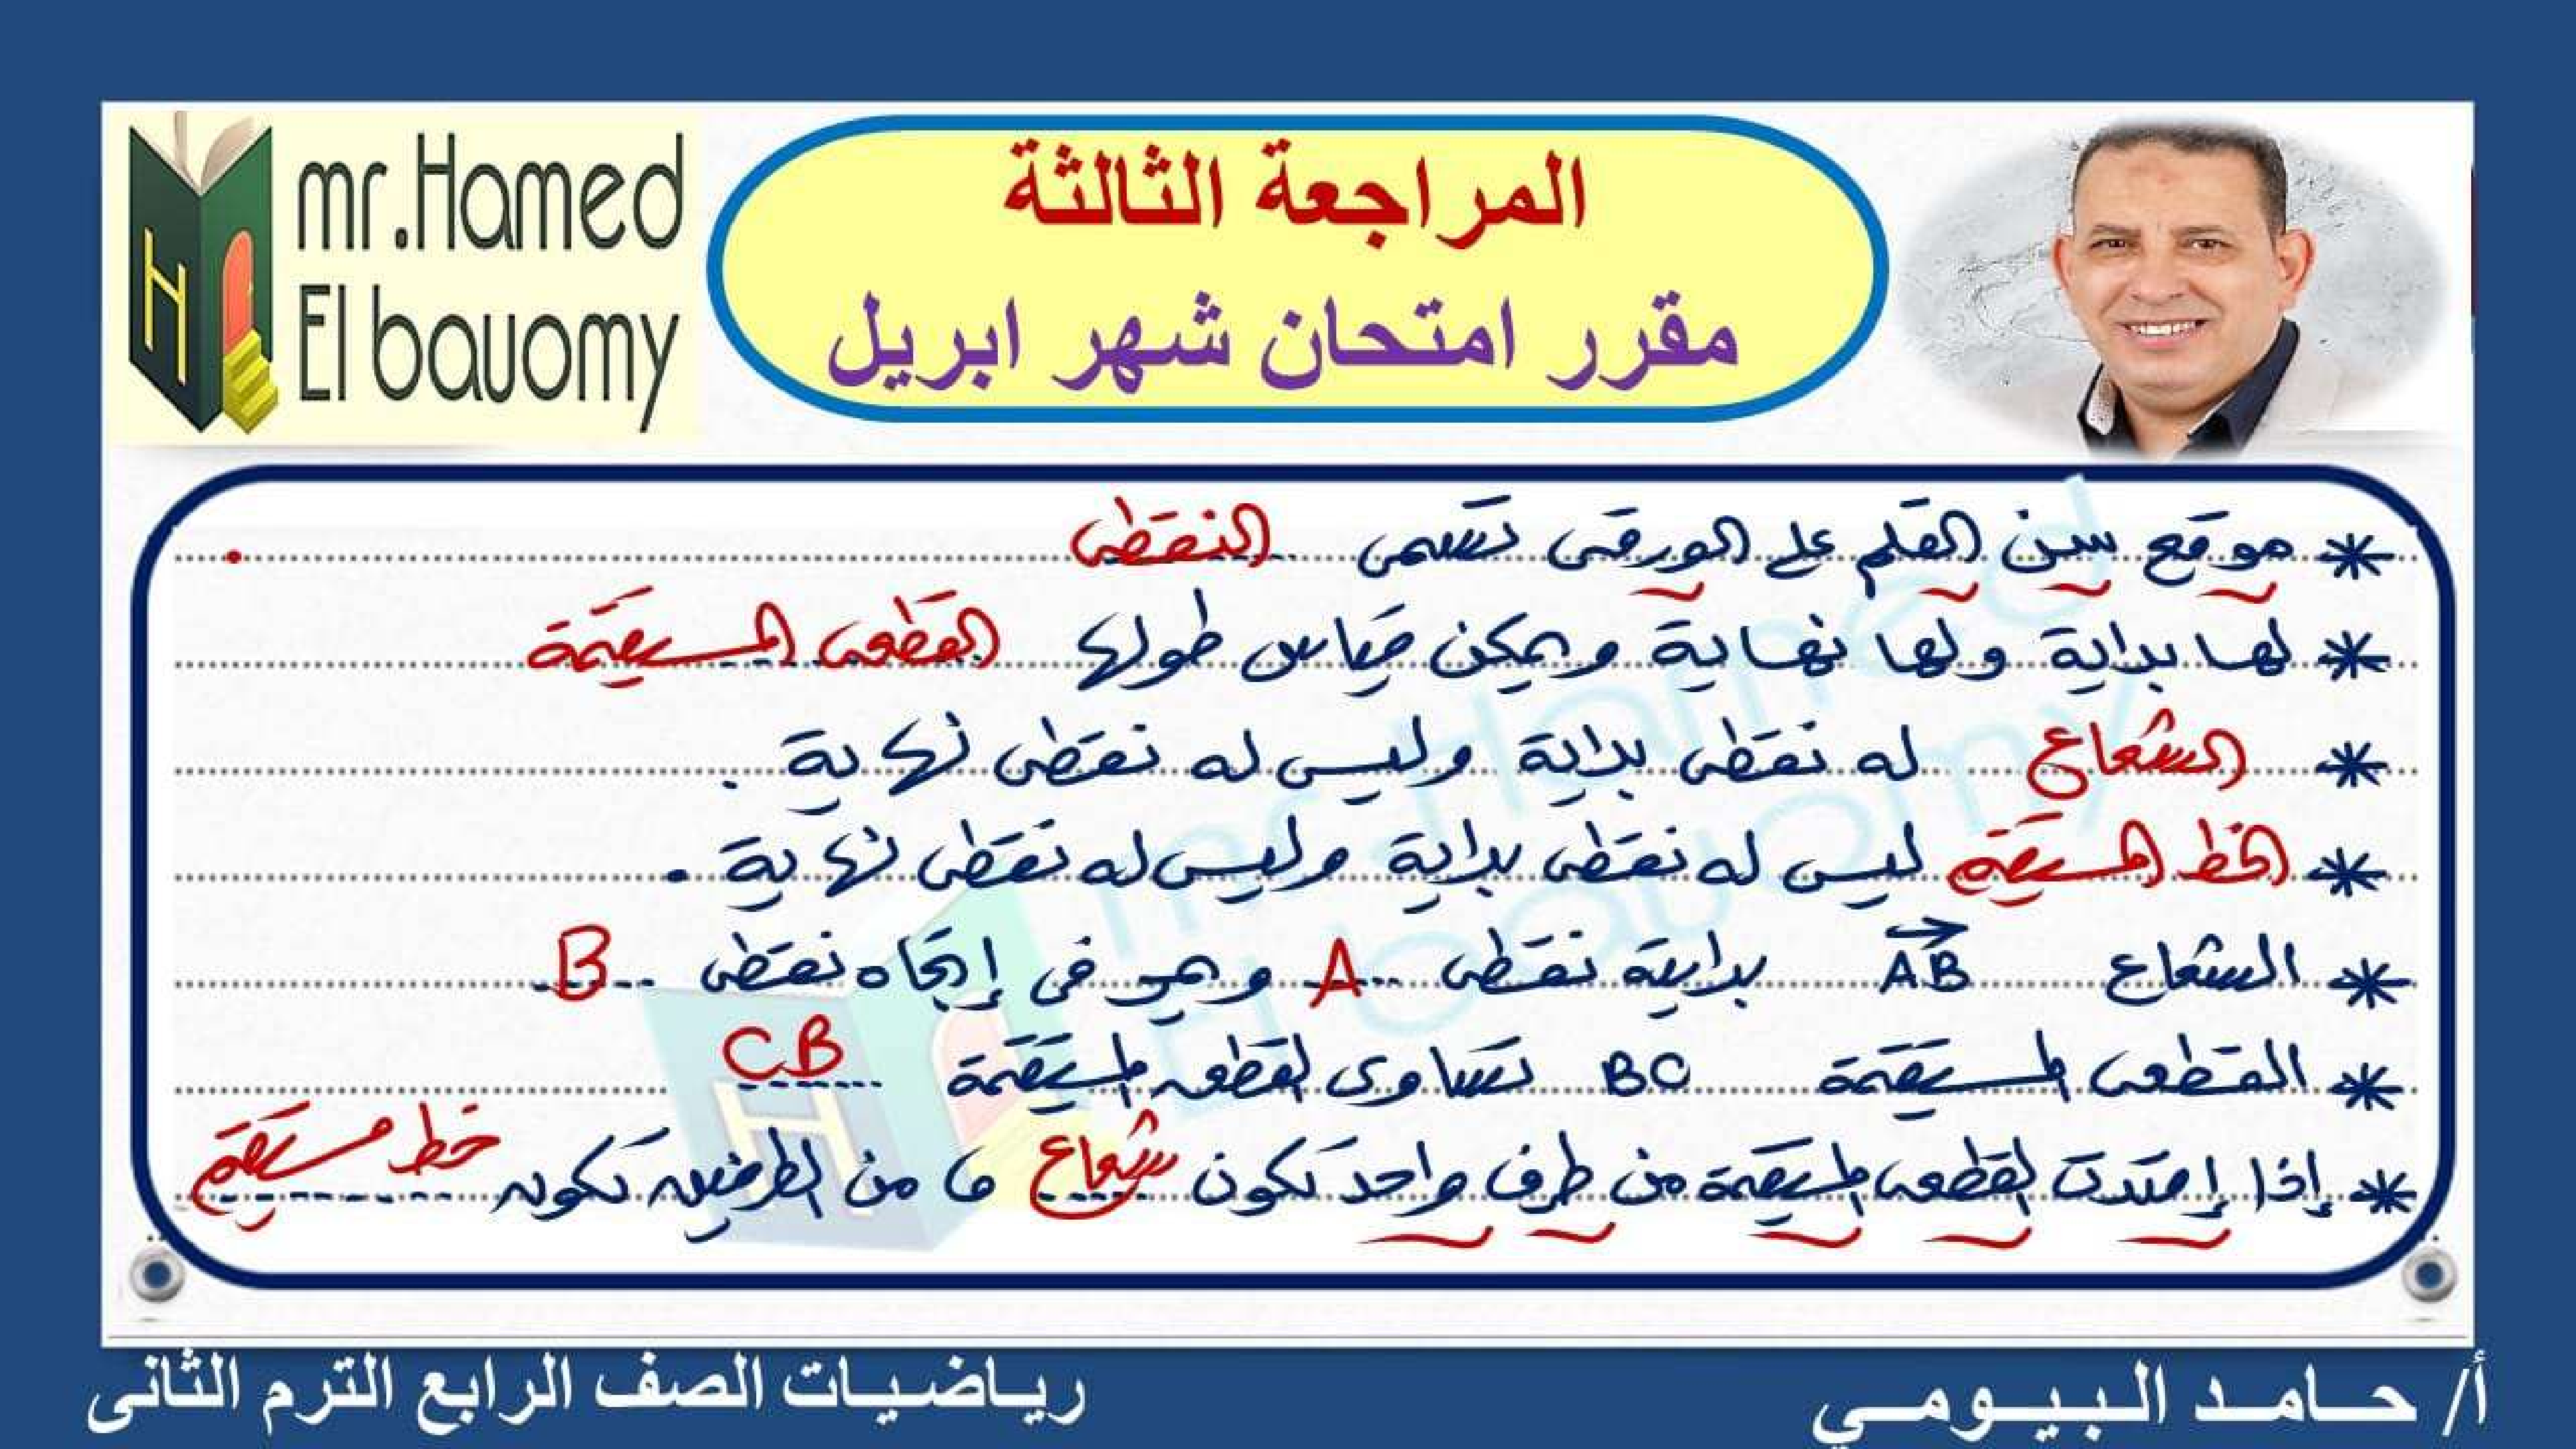 mr.Hamed
El bauomy
المراجعة الثالثة
مقرر امتحان شهر ابريل
* موقع سن القلم على الورقة تسمى النقطة
* لها بداية ولها نهاية ويمكن قياس طولها القطعة المستقيمة
* الشعاع له نقطة بداية وليس له نقطة نهاية .
* الخط المستقيم ليس له نقطة بداية وليس له نقطة نهاية .
* الشعاع AB بدايته نقطة A وهو في إتجاه نقطة B
* القطعة المستقيمة BC تساوى القطعة المستقيمة CB
* إذا إمتدت القطعة المستقيمة من طرف واحد تكون شعاع ، من الطرفين تكون خط مستقيم
أ/ حامد البيومي
رياضيات الصف الرابع الترم الثانى